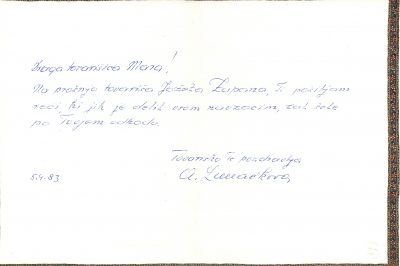 Draga tovarišica Mara!
Na prošnjo tovariša Jožeta Zupana, Ti pošiljam
reči, ki jih je delil vsem navzočim, tudi
po Tvojem odhodu.
Tovariško Te pozdravlja
A.
5.4.83